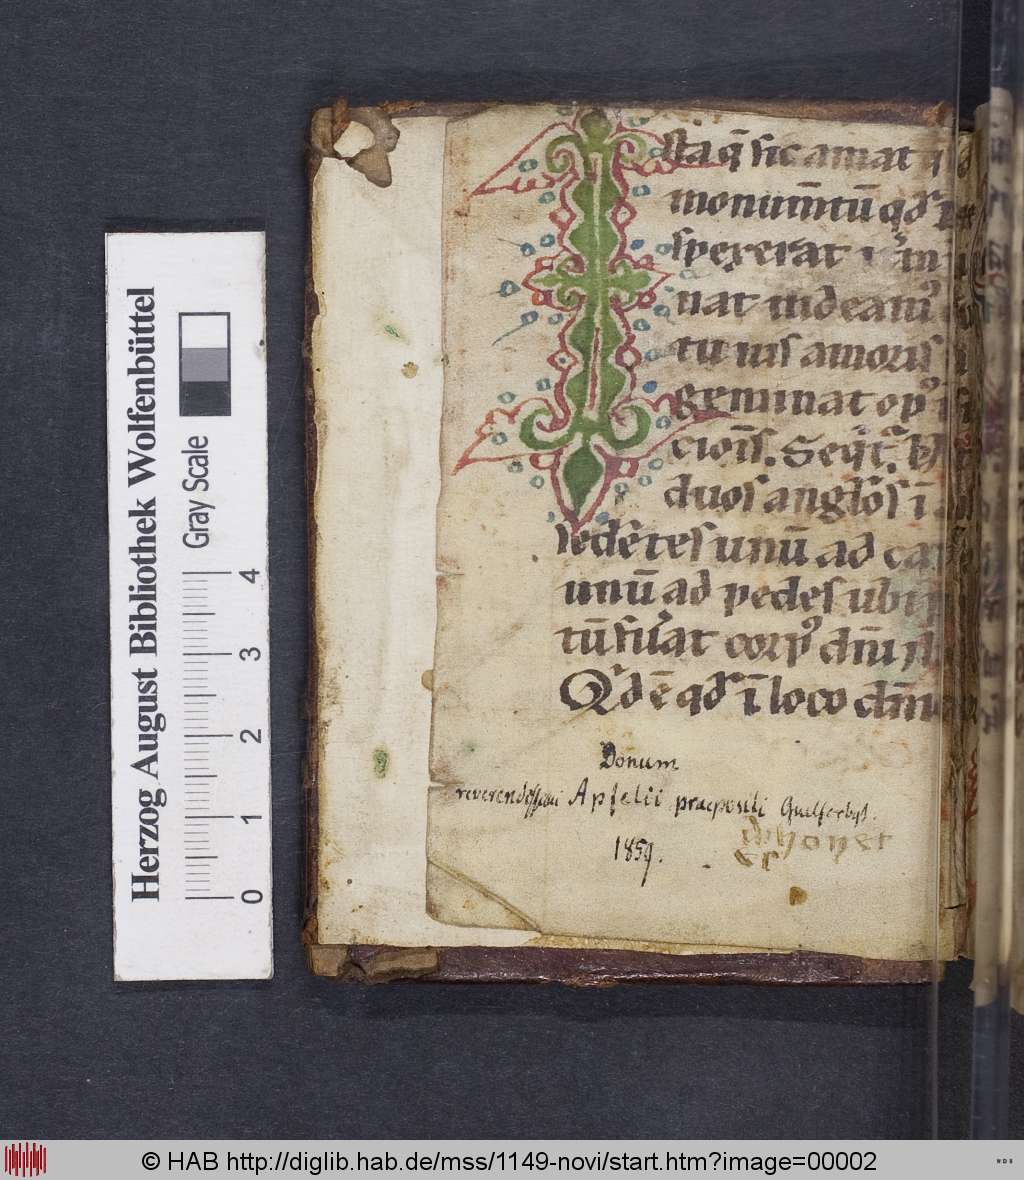 Herzog August Bibliothek Wolfenbüttel
Gray Scale
0 1 2 3 4
Ista q̄ sic amat q
monum̄tū qd̓
spexerat
uideam᷒
tu uis amoris
geminat op᷒ i
cionis̄. Seqt᷑. vͥ
duos angłos ī
sedētes unū ad ca
unū ad pedes ubi p
tū fu̓at corp᷒ dn̄i
Qd̓ ē qd̓ ī loco dn̄i
Donum
reverendissimi Apfelii praepositi Guelferbyt.
1859.
© HAB http://diglib.hab.de/mss/1149-novi/start.htm?image=00002